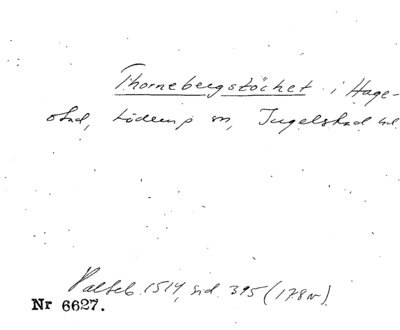 Thornebergstöchet i Hage-
stad, Löderup sn, Ingelstad hd.
Palteb. 1514, sid. 395 (178v).
Nr 6627.